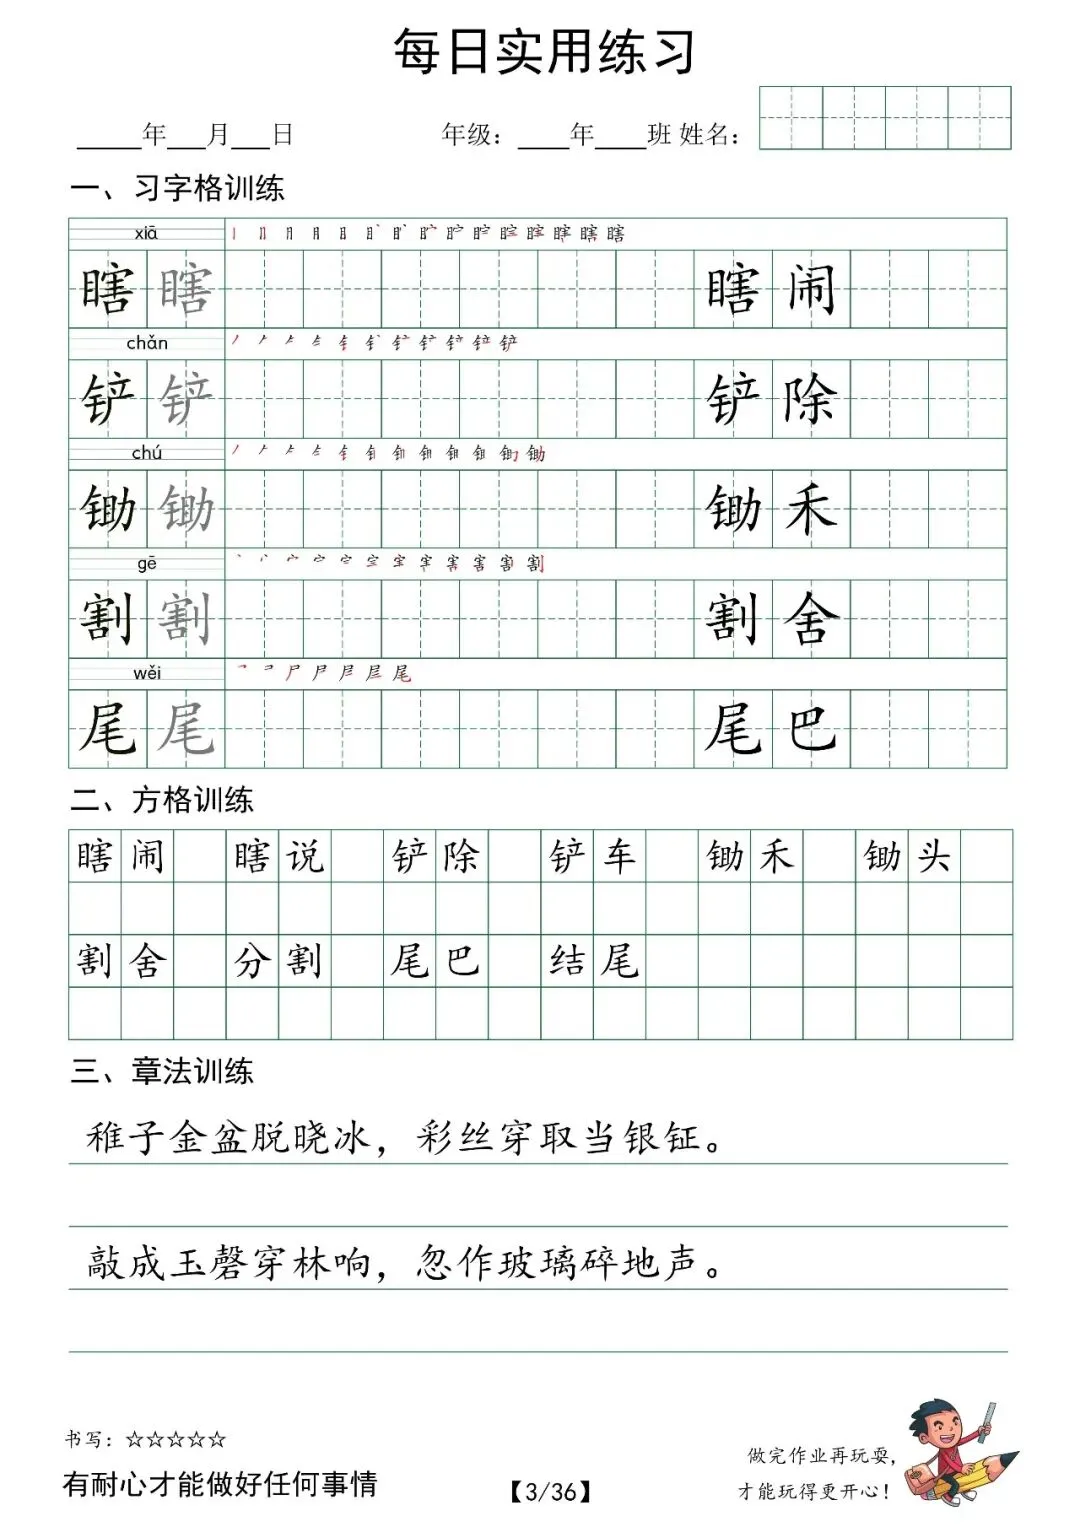 每日实用练习
_____年___月___日 年级：____年____班 姓名：
一、习字格训练
xiā
瞎 瞎 瞎 闹
chǎn
铲 铲 铲 除
chú
锄 锄 锄 禾
gē
割 割 割 舍
wěi
尾 尾 尾 巴
二、方格训练
瞎 闹 瞎 说 铲 除 铲 车 锄 禾 锄 头
割 舍 分 割 尾 巴 结 尾
三、章法训练
稚子金盆脱晓冰，彩丝穿取当银钲。
敲成玉磬穿林响，忽作玻璃碎地声。
书写：☆☆☆☆☆
做完作业再玩耍，
有耐心才能做好任何事情
【3/36】
才能玩得更开心！